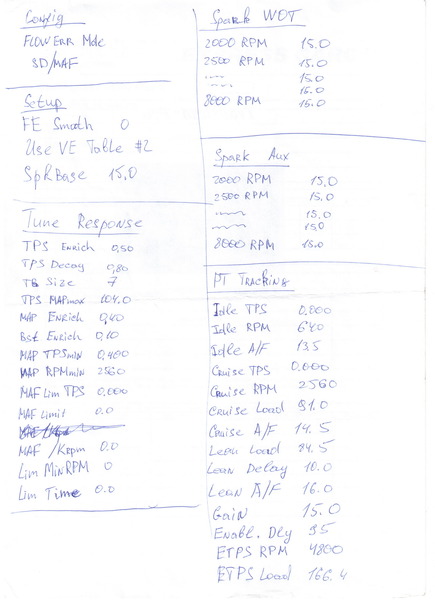 Config
FLOW ERR Mde
SD/MAF
Setup
FE Smooth 0
Use VE Table #2
SpkBase 15,0
Tune Response
TPS Enrich 0,50
TPS Decay 0,80
TB Size 7
TPS MAPmax 104.0
MAP Enrich 0,40
Bst Enrich 0,10
MAP TPSmin 0,400
MAP RPMmin 2560
MAF Lim TPS 0,000
MAF Limit 0.0
MAF /Krpm 0.0
Lim MinRPM 0
Lim Time 0.0
Spark WOT
2000 RPM 15.0
2500 RPM 15.0
15.0
15.0
8000 RPM 15.0
Spark Aux
2000 RPM 15.0
2500 RPM 15.0
15.0
15.0
8000 RPM 15.0
PT Tracking
Idle TPS 0,000
Idle RPM 640
Idle A/F 13.5
Cruise TPS 0,000
Cruise RPM 2560
Cruise Load 91.0
Cruise A/F 14.5
Lean Load 84.5
Lean Delay 10.0
Lean A/F 16.0
Gain 15.0
Enabl. Dly 95
ETPS RPM 4800
ETPS Load 166.4